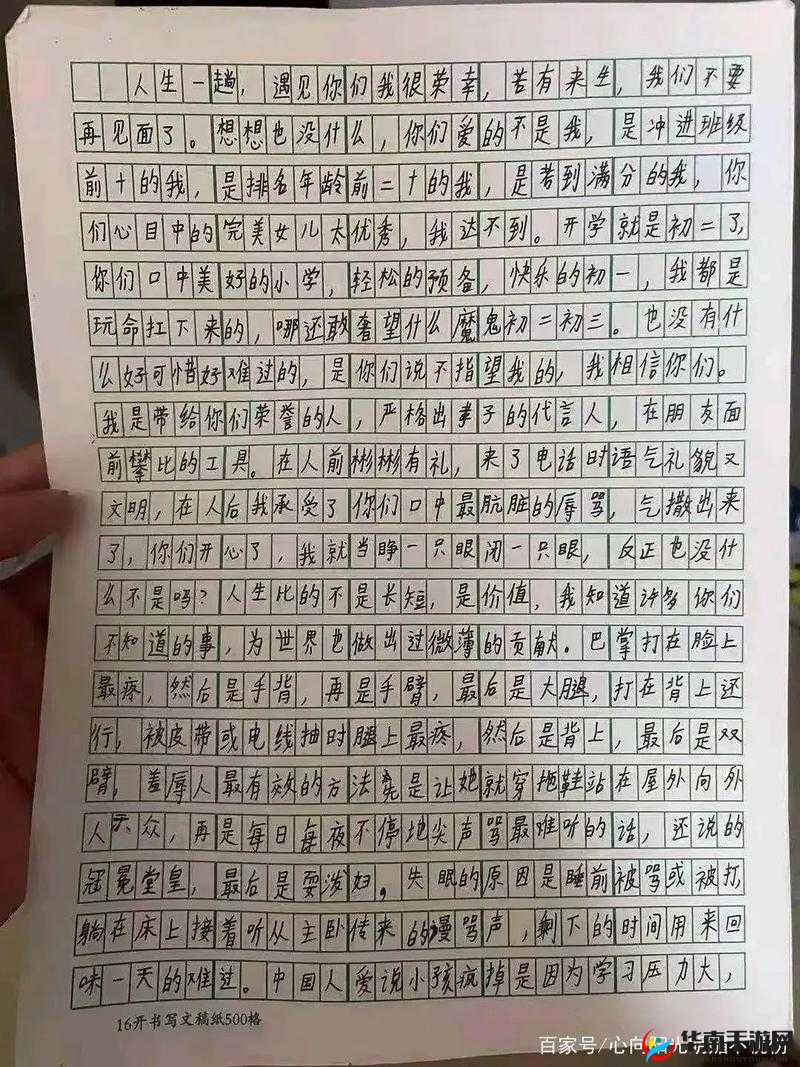 人生一趟，遇见你们我很荣幸，若有来生，我们不要
再见面了。想想也没什么，你们爱的不是我，是冲进班级
前十的我，是排名年龄前二十的我，是考到满分的我，你
们心目中的完美女儿太优秀，我达不到。开学就是初二了，
你们口中美好的小学，轻松的预备，快乐的初一，我都是
玩命扛下来的，哪还敢奢望什么魔鬼初二初三。也没有什
么好可惜好难过的，是你们说不指望我的，我相信你们。
我是带给你们荣誉的人，严格出孝子的代言人，在朋友面
前攀比的工具。在人前彬彬有礼，来了电话时语气礼貌又
文明，在人后我承受了你们口中最肮脏的辱骂，气撒出来
了，你们开心了，我就当睁一只眼闭一只眼，反正也没什
么不是吗？人生比的不是长短，是价值，我知道许多你们
不知道的事，为世界也做出过微薄的贡献。巴掌打在脸上
最疼，然后是手背，再是手臂，最后是大腿，打在背上还
行，被皮带或电线抽时腿上最疼，然后是背上，最后是双
臂，羞辱人最有效的方法是让她就穿拖鞋站在屋外向外
人众，再是每日每夜不停地尖声骂最难听的话，还说的
冠冕堂皇，最后是耍泼妇。失眠的原因是睡前被骂或被打
躺在床上接着听从主卧传来的谩骂声，剩下的时间用来回
味一天的难过。中国人爱说小孩疯掉是因为学习压力大，
16开书写文稿纸500格
百家号/心向阳光
华南天游网